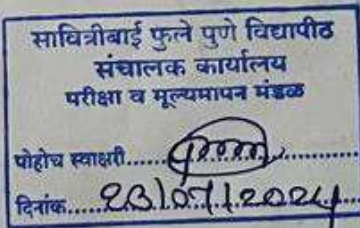 सावित्रीबाई फुले पुणे विद्यापीठ
संचालक कार्यालय
परीक्षा व मूल्यमापन मंडळ
पोहोच स्वाक्षरी..........................
दिनांक.....23/07/2024....